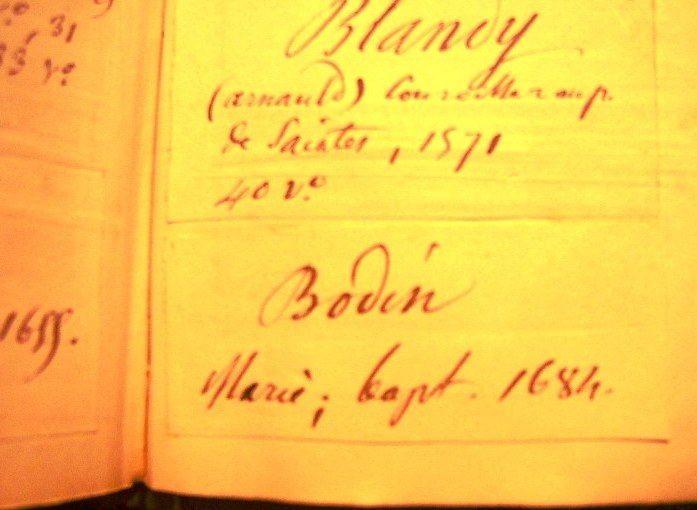 , 31
vº
1655.
Blandy
(arnauld) Conseiller au p.
de Saintes, 1571
40 vº
Bodin
Marie; bapt. 1684.